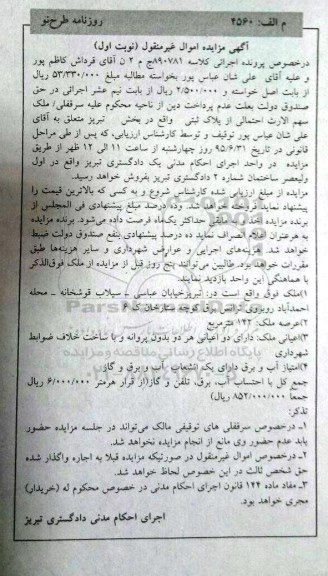 م الف: ۴۵۶۰ روزنامه طرح‌نو
آگهی مزایده اموال غیرمنقول (نوبت اول)
درخصوص پرونده اجرائی کلاسه ۸۹۰۷۸۱ج م ۲ ن آقای قرداش کاظم پور
و علیه آقای علی شان عباس پور بخواسته مطالبه مبلغ ۵۳/۳۳۰/۰۰۰ ریال
از بابت اصل خواسته و ۲/۵۰۰/۰۰۰ ریال از بابت نیم عشر اجرائی در حق
صندوق دولت بعلت عدم پرداخت دین از ناحیه محکوم علیه سرقفلی/ ملک
سهم الارث احتمالی از پلاک ثبتی واقع در بخش تبریز متعلق به آقای
علی شان عباس پور توقیف و توسط کارشناس ارزیابی، که پس از طی مراحل
قانونی در تاریخ ۹۵/۶/۳۱ روز چهارشنبه از ساعت ۱۱ الی ۱۲ ظهر از طریق
مزایده در واحد اجرای احکام مدنی یک دادگستری تبریز واقع در اول
ولیعصر ساختمان شماره ۲ دادگستری تبریز بفروش خواهد رسید.
مزایده از مبلغ ارزیابی شده کارشناس شروع و به کسی که بالاترین قیمت را
پیشنهاد نماید واگذار خواهد شد. وده درصد مبلغ پیشنهادی فی المجلس از
برنده مزایده اخذ و مابقی حداکثر یک‌ماه فرصت داده می‌شود. برنده مزایده
به هرعنوان اعلام انصراف نماید ده درصد پیشنهادی بنفع صندوق دولت ضبط
خواهد شد. هزینه‌های اجرایی و عوارض شهرداری و سایر هزینه‌ها طبق
مقررات خواهد بود. طالبین می‌توانند پنج روز قبل از مزایده از ملک فوق‌الذکر
با هماهنگی این واحد بازدید نمایند.
۱)ملک فوق واقع است در: تبریزخیابان عباسی ـ سیلاب قوشخانه ـ محله
احمدآباد روبروی اداره برق کوچه ستارخان ک ۶
۲)عرصه ملک: ۱۴۲ مترمربع
۳)اعیانی ملک: دارای دو اعیانی هر دو بدون پروانه و با ساخت خلاف ضوابط
شهرداری
۴)امتیاز آب و برق دارای یک انشعاب آب و برق و گاز
جمع کل با احتساب آب، برق، تلفن و گاز(از قرار هرمتر ۶/۰۰۰/۰۰۰ ریال
جمعا ۸۵۲/۰۰۰/۰۰۰ ریال)
تذکر:
۱ـ درخصوص سرقفلی های توقیفی مالک می‌تواند در جلسه مزایده حضور
یابد عدم حضور وی مانع از انجام مزایده نخواهد شد.
۲ـ درخصوص اموال غیرمنقول در صورتیکه مزایده قبلا به اجاره واگذار شده
حق شخص ثالث در این خصوص لحاظ خواهد شد.
۳ـ مفاد ماده ۱۴۴ قانون اجرای احکام مدنی در خصوص محکوم له (خریدار)
مجری خواهد بود.
اجرای احکام مدنی دادگستری تبریز